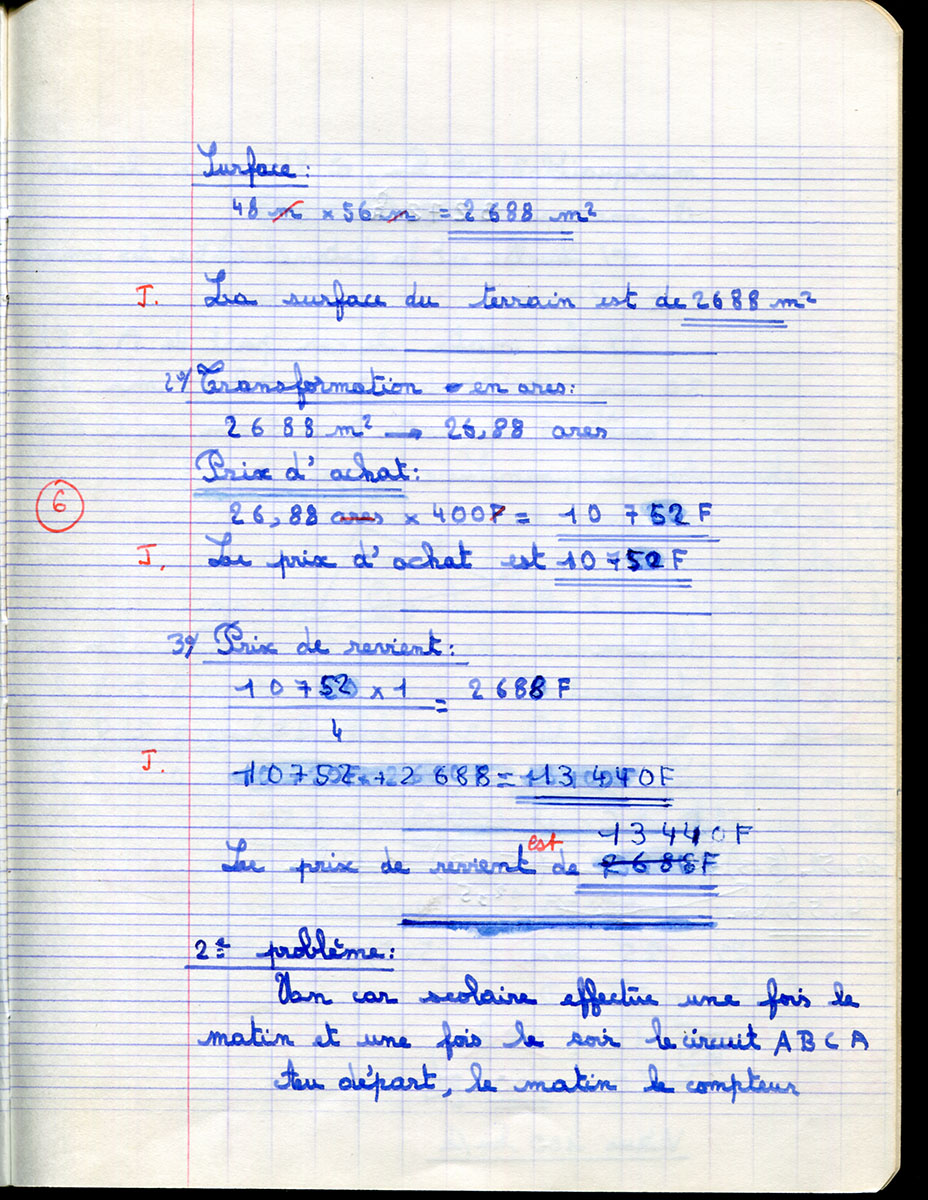 Surface :
48 m x 56 m = 2 688 m²
J. La surface du terrain est de 2688 m²
2°/ Transformation en ares :
2 6 88 m² → 26,88 ares
Prix d'achat :
6
26,88 ares x 400F = 10 752 F
J. Le prix d'achat est 10 752 F
3°/ Prix de revient :
10 752 x 1 = 2 688 F
4
J. 10752 + 2 688 = 13 440F
est 13 440F
Le prix de revient de 2688F
2e problème :
Un car scolaire effectue une fois le
matin et une fois le soir le circuit A B C A
Au départ, le matin le compteur